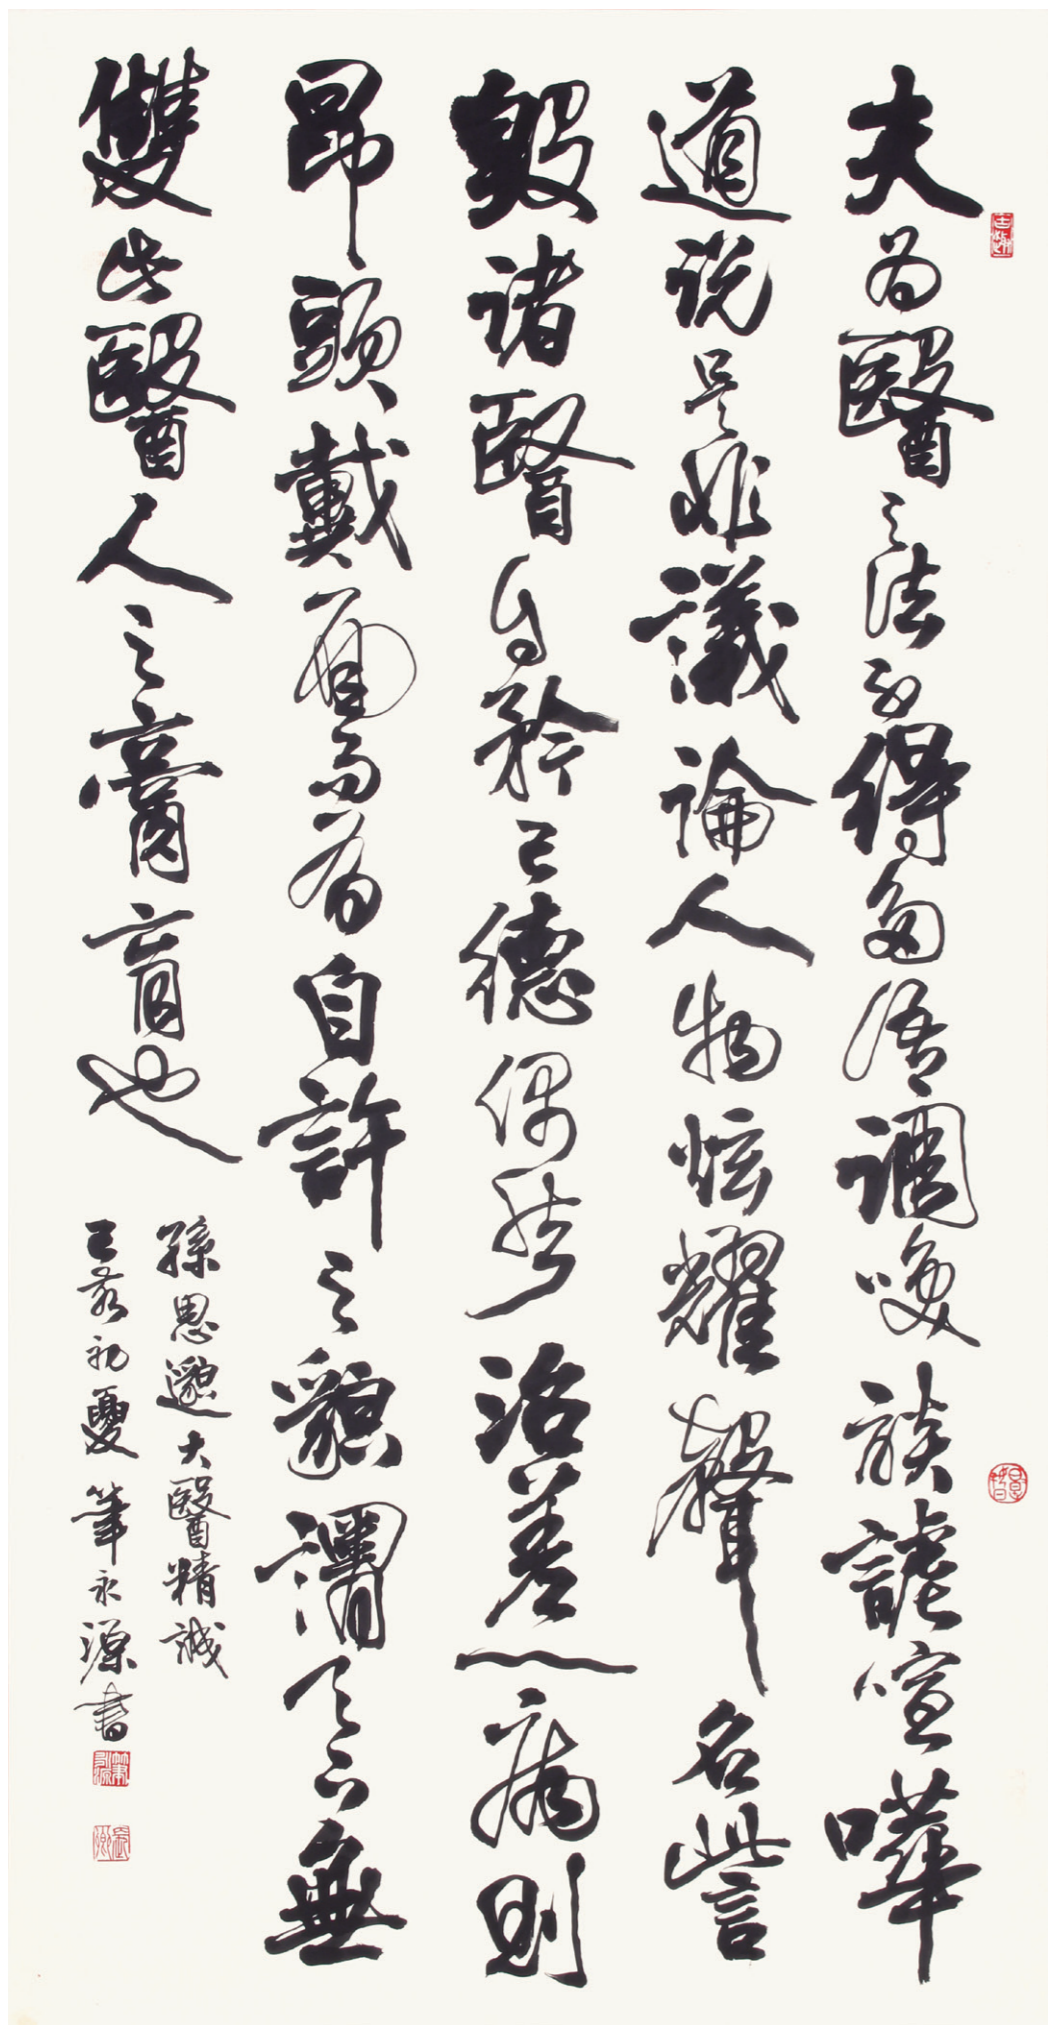 夫為醫之法不得多語調咲談謔喧嘩
道説是非議論人物炫耀聲名訾
毀諸醫自矜己德偶然治差一病則
昂頭戴面而有自許之貌謂天下無
雙此醫人之膏肓也
孫思邈大醫精誠
己亥初夏筆永源書